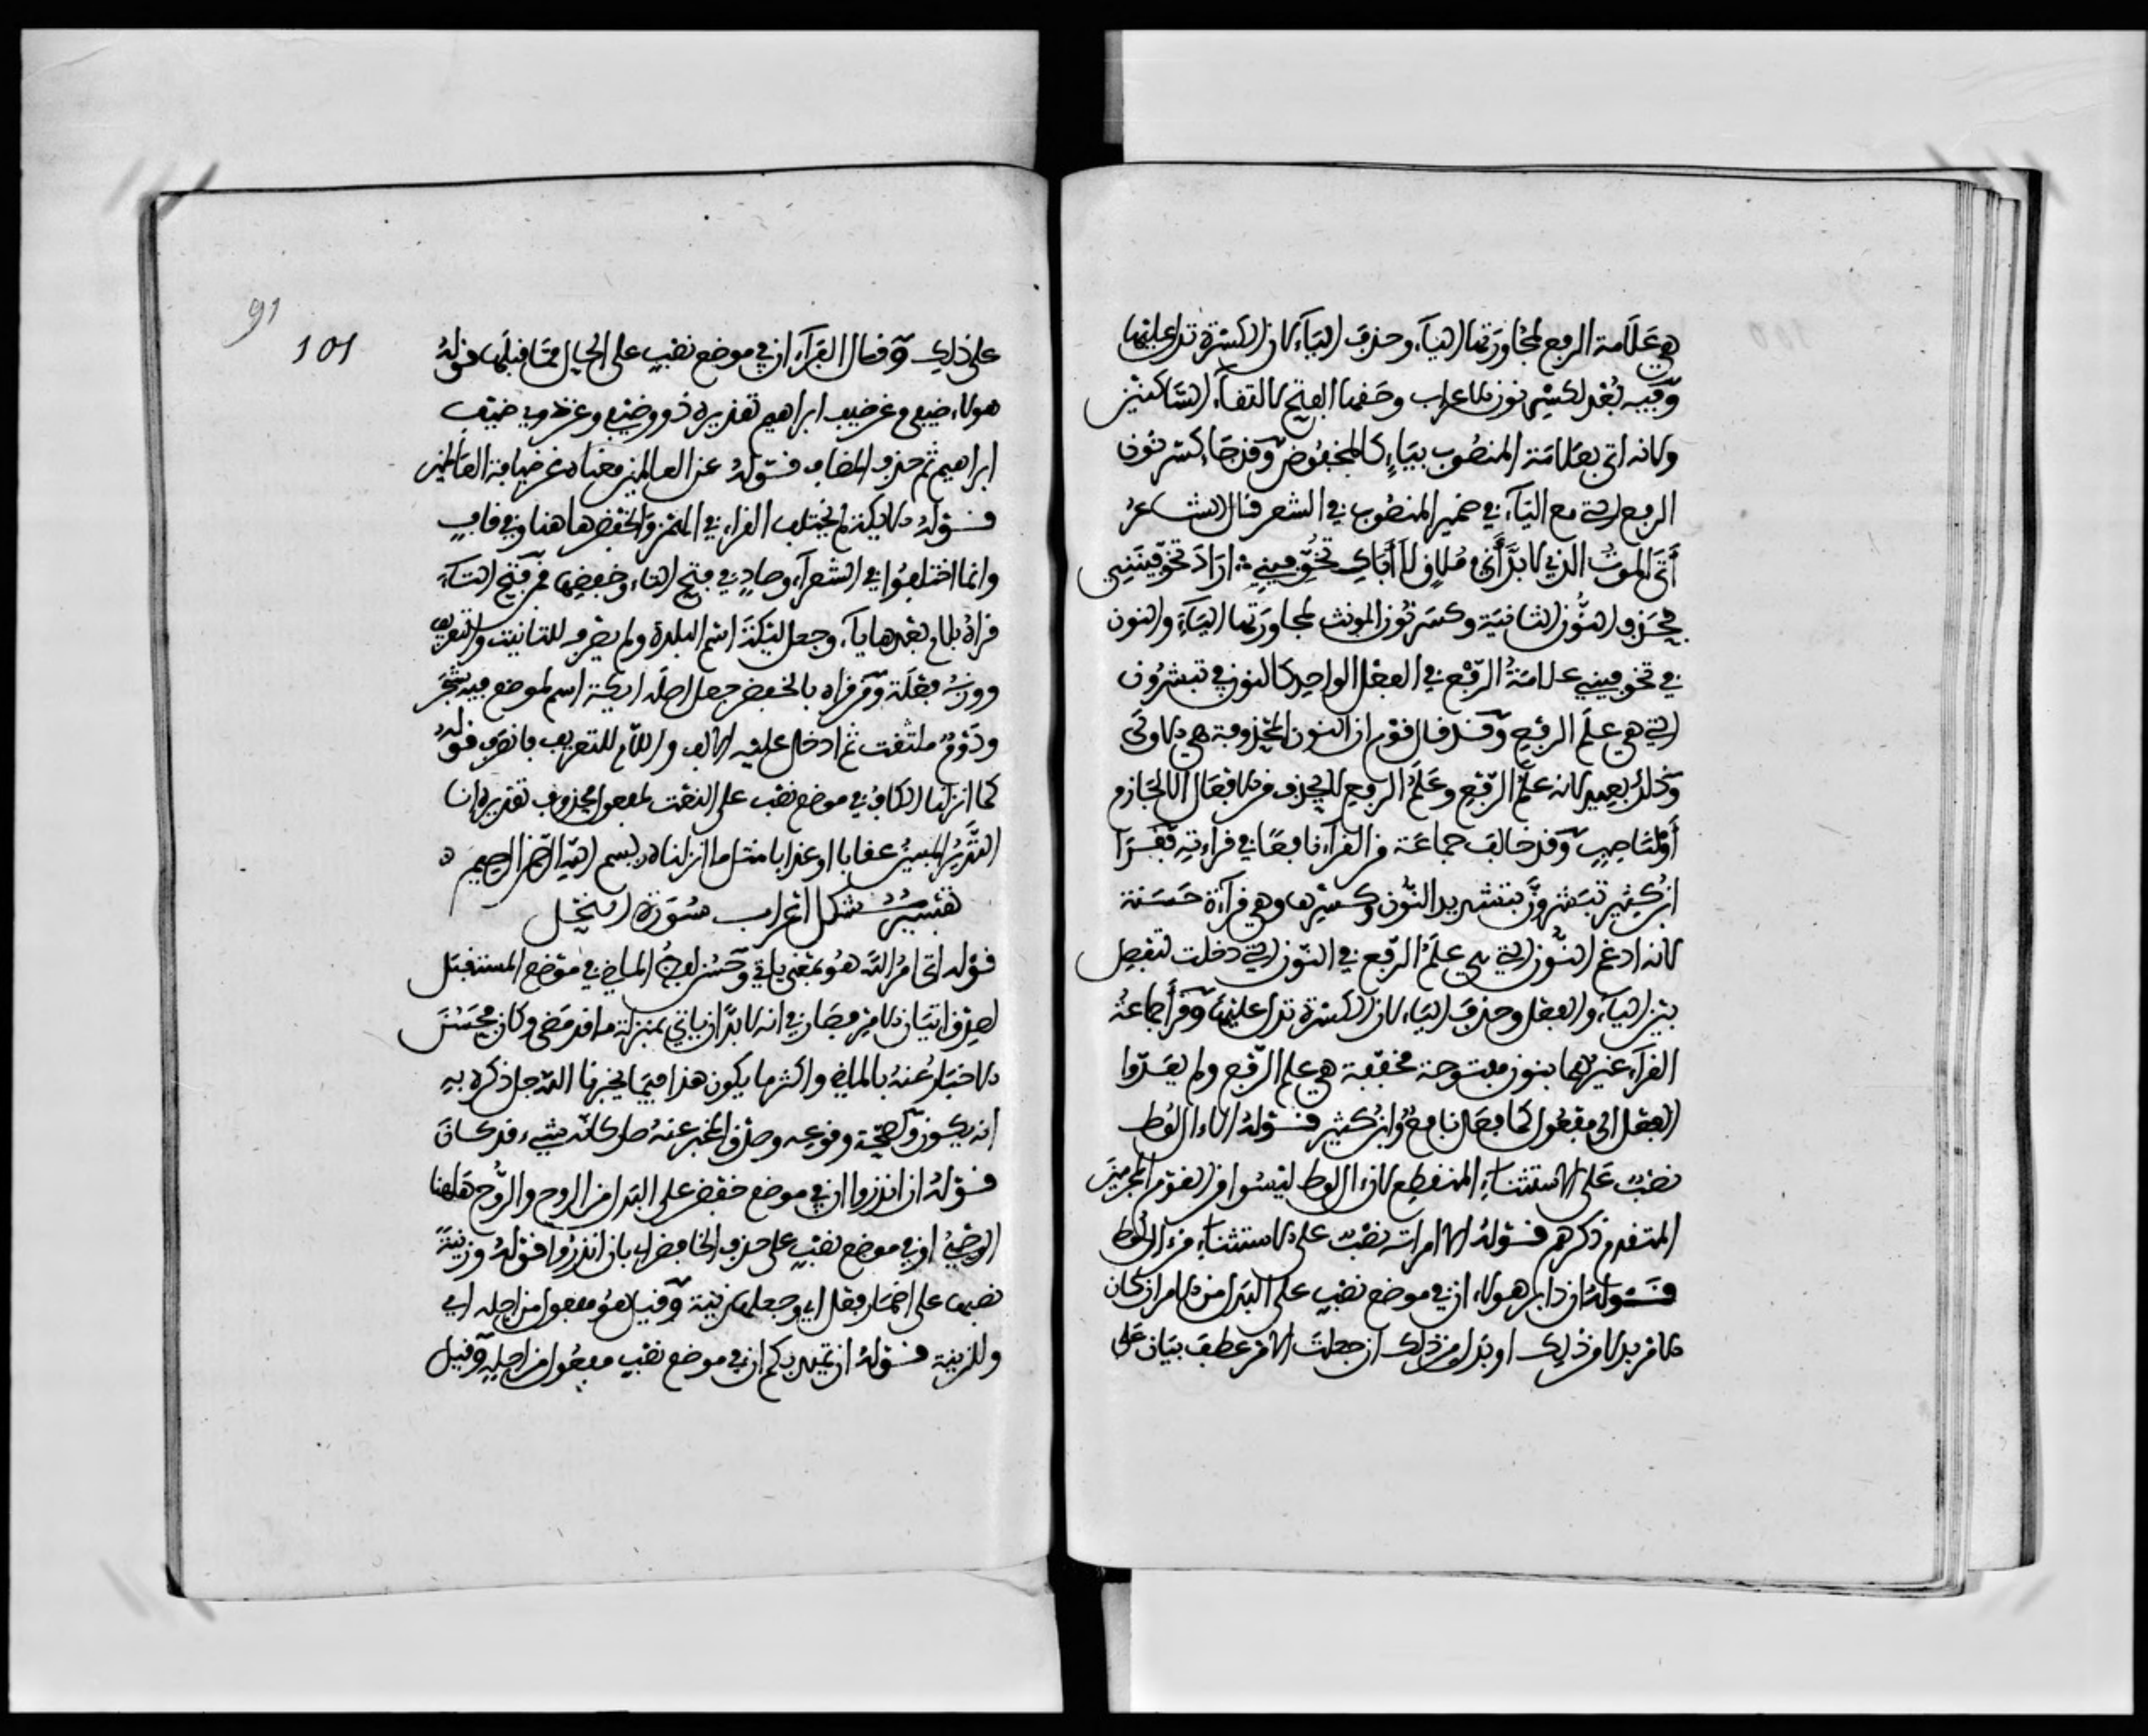 هي علامة الرفع لمجاورتها الياء وحذف الياء لان الكسرة تدل عليها
وفيه بعد لكسر نون الاعراب وحقها الفتح لالتقاء الساكنين
ولانه اتى بعلامة المنصوب بياء كالمخفوض وقد جاء كسر نون
الرفع التي مع الياء في ضمير المنصوب في الشعر قال الشاعر
أتى الموت الذي لا بد أني ملاق لا أباك تخوفيني اراد تخوفينني
فحذف النون الثانية وكسر نون المونث لمجاورتها الياء والنون
في تخوفيني علامة الرفع في الفعل الواحد كالنون في تبشرون
التي هي علم الرفع وقد قال قوم ان النون المحذوفة هي الاولى
وذلك بعيد لانه علم الرفع وعلم الرفع لا يحذف من الافعال الا لجازم
أو لناصب وقد خالف جماعة من القراء نافعا في قراءته فقرا
ابن كثير تبشرون بتشديد النون وكسرها وهي قراءة حسنة
لانه ادغم النون التي هي علم الرفع في النون التي دخلت لتفصل
بين الياء والفعل وحذف الياء لان الكسرة تدل عليها وقرأ جماعة
القراء غيرهما بنون مفتوحة مخففة هي علم الرفع ولم يعدوا
الفعل الى مفعول كما فعل نافع وابن كثير قوله الا ءال لوط
نصب على الاستثناء المنقطع لان ءال لوط ليسوا من القوم المجرمين
المتقدم ذكرهم قوله الا امراته نصب على الاستثناء من ءال لوط
قوله ان دابر هولاء ان في موضع نصب على البدل من الامر ان كان
الامر بدلا من ذلك او بدل من ذلك ان جعلت الامر عطف بيان على
91
101
على ذلك وقال الفراء ان في موضع نصب على الحال مما قبلها قوله
هولاء ضيفي وعن ضيف ابراهيم تقديره ذوو ضيفي وعن ذوي ضيف
ابراهيم ثم حذف المضاف قوله عن العالمين معناه عن ضيافة العالمين
قوله الايكة لم يختلف القراء في الهمز والخفض هاهنا وفي قاف
وانما اختلفوا في الشعراء وصاد في فتح التاء وخفضها فمن فتح التاء
قراه بلام بعدها ياء وجعل ليكة اسم البلدة ولم يصرفه للتانيث والتعريف
ووزنه فعلة ومن قراه بالخفض جعل اصله ايكة اسم لموضع فيه شجر
ودوم ملتفت ثم ادخل عليه الالف واللام للتعريف فانصرف قوله
كما انزلنا الكاف في موضع نصب على النعت لمفعول محذوف تقديره انا
النذير المبين عقابا او عذابا مثل ما انزلناه بسم الله الرحمن الرحيم ه
تفسير مشكل اعراب سورة النحل
قوله اتى امر الله هو بمعنى ياتي وحسن لفظ الماضي في موضع المستقبل
لصدق اتيان الامر فصار في انه لا بد ان ياتي بمنزلة ما قد مضى وكان فحسن
الاخبار عنه بالماضي واكثر ما يكون هذا فيما يخبرنا الله جل ذكره به
انه يكون ولصحة وقوعه وصدق المخبر عنه صار كانه شيء قد كان
قوله ان انذروا ان في موضع خفض على البدل من الروح والروح هاهنا
الوحي او في موضع نصب على حذف الخافض اي بان انذروا قوله وزينة
نصبها على اضمار فعل اي وجعلها زينة وقيل هو مفعول من اجله اي
وللزينة قوله ان تميد بكم ان في موضع نصب مفعول من اجله وقيل